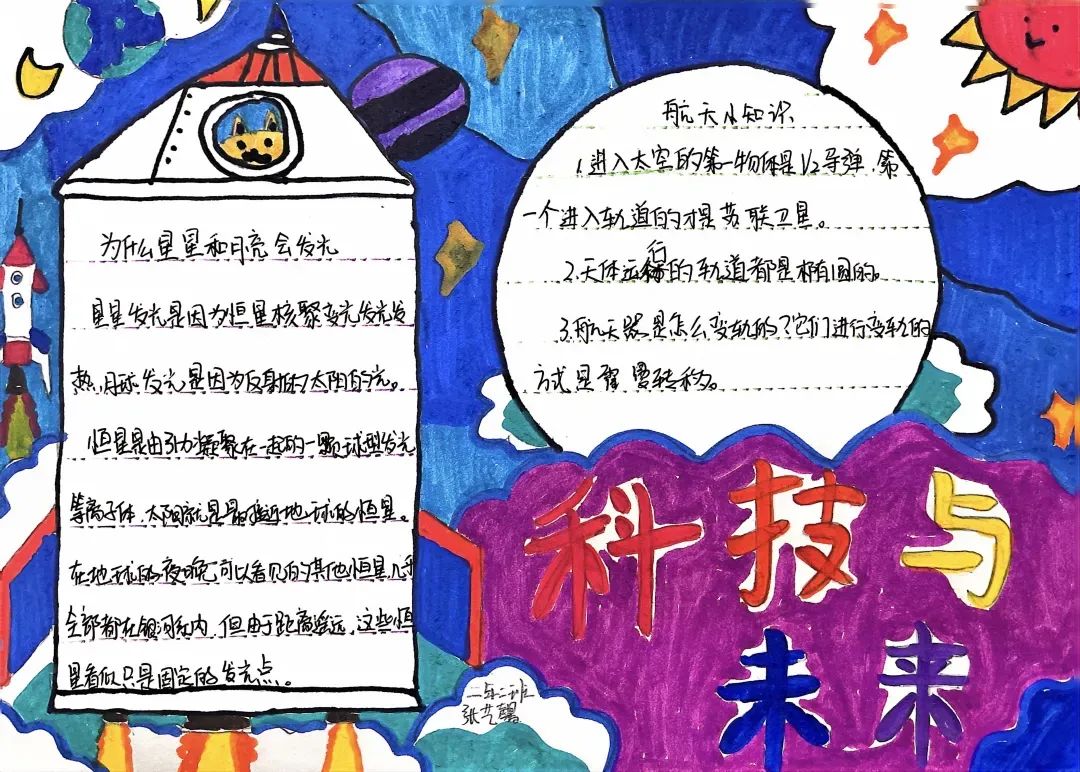 为什么星星和月亮会发光
星星发光是因为恒星核聚变光发光发
热,月球发光是因为反射的太阳的光。
恒星是由引力凝聚在一起的一颗球型发光
等离子体,太阳就是最接近地球的恒星。
在地球的夜晚可以看见的其他恒星几乎
全部都在银河系内,但由于距离遥远,这些恒
星看似只是固定的发光点。
航天小知识
1.进入太空的第一物体是V2导弹,第
一个进入轨道的才是苏联卫星。
2.天体运行的轨道都是椭圆的。
3.航天器是怎么变轨的?它们进行变轨的
方式是霍曼转移。
科技与
未来
二年二班
张艺